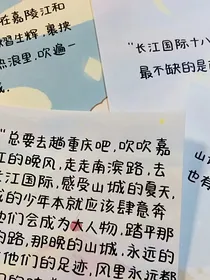 在嘉陵江和
习生辉，裹挟
热浪里，吹遍一
城。
"长江国际十八
最不缺的是
山城
也有
"总要去趟重庆吧，吹吹嘉
江的晚风，走走南滨路，去
长江国际，感受山城的夏天，
成的少年本就应该肆意奔
他们会成为大人物，踏平那
的路，那晚的山城，永远的
他们的足迹，风里永远都